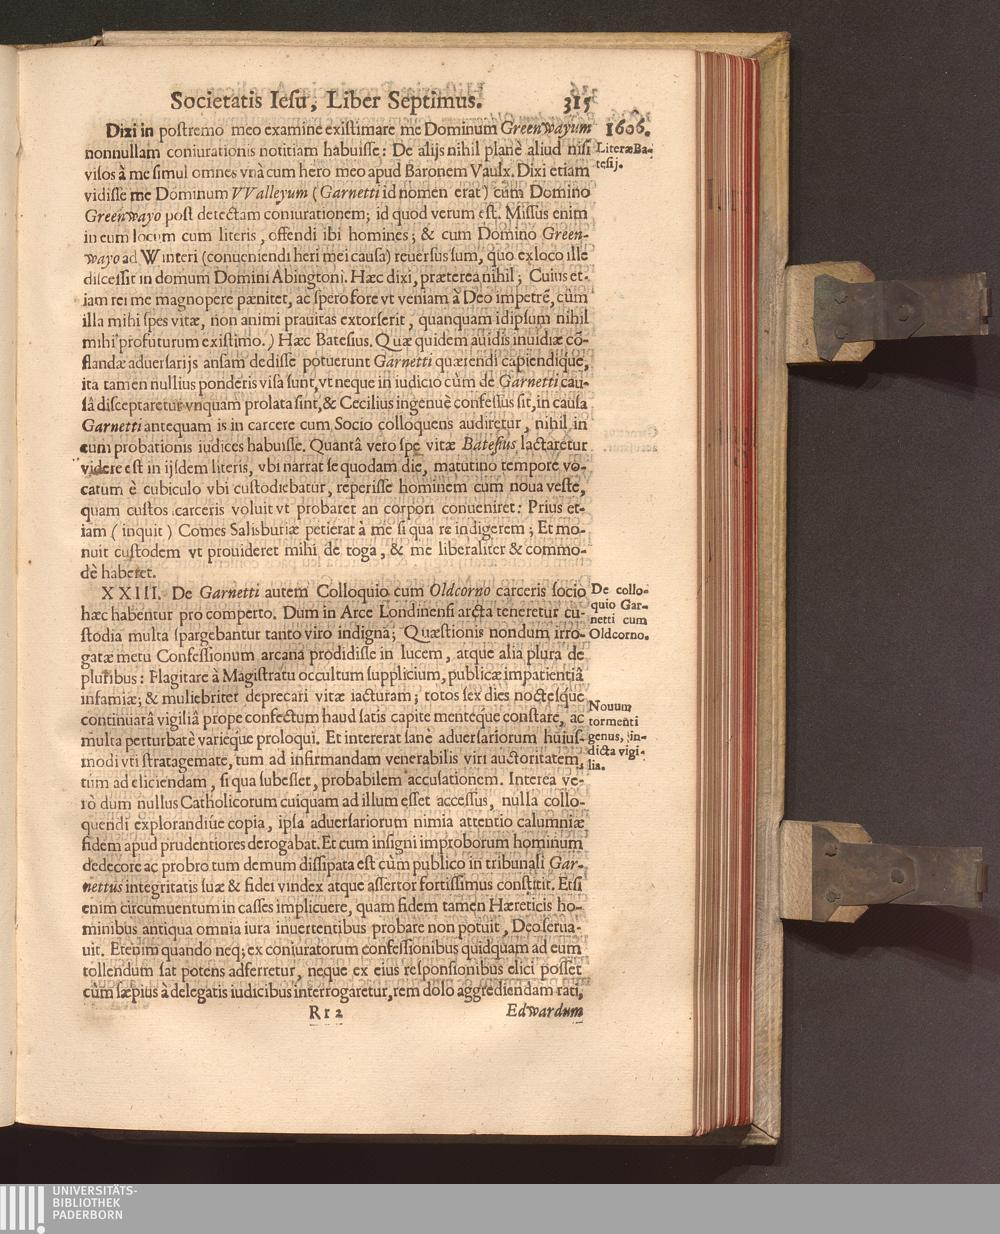 Societatis Iesu, Liber Septimus. 315
Dixi in postremo meo examine existimare me Dominum Greenwayum
1606.
nonnullam coniurationis notitiam habuisse: De alijs nihil planè aliud nisi
Literæ Ba-
visos à me simul omnes vnà cum hero meo apud Baronem Vaulx. Dixi etiam
tesij.
vidisse me Dominum VValleyum (Garnetti id nomen erat) cum Domino
Greenwayo post detectam coniurationem; id quod verum est. Missus enim
in eum locum cum literis, offendi ibi homines; & cum Domino Green-
wayo ad Winteri (conueniendi heri mei causa) reuersus sum, quo ex loco ille
discessit in domum Domini Abingtoni. Hæc dixi, præterea nihil; Cuius et-
iam rei me magnopere pænitet, ac spero fore vt veniam à Deo impetrē, cùm
illa mihi spes vitæ, non animi prauitas extorserit, quanquam id ipsum nihil
mihi profuturum existimo.) Hæc Batesius. Quæ quidem auidis inuidiæ cō-
flandæ aduersarijs ansam dedisse potuerunt Garnetti quærendi capiendique,
ita tamen nullius ponderis visa sunt, vt neque in iudicio cùm de Garnetti cau-
sâ disceptaretur vnquam prolata sint, & Cecilius ingenuè confessus sit, in causa
Garnetti antequam is in carcere cum Socio colloquens audiretur, nihil in
eum probationis iudices habuisse. Quantâ vero spe vitæ Batesius lactaretur
videre est in ijsdem literis, vbi narrat se quodam die, matutino tempore vo-
catum è cubiculo vbi custodiebatur, reperisse hominem cum noua veste,
quam custos carceris voluit vt probaret an corpori conueniret: Prius et-
iam (inquit) Comes Salisburiæ petierat à me si qua re indigerem; Et mo-
nuit custodem vt prouideret mihi de toga, & me liberaliter & commo-
dè haberet.
XXIII. De Garnetti autem Colloquio cum Oldcorno carceris socio
De collo-
hæc habentur pro comperto. Dum in Arce Londinensi arcta teneretur cu-
quio Gar-
netti cum
stodia multa spargebantur tanto viro indigna; Quæstionis nondum irro-
Oldcorno.
gatæ metu Confessionum arcana prodidisse in lucem, atque alia plura de
pluribus: Flagitare à Magistratu occultum supplicium, publicæ impatientiâ
infamiæ; & muliebriter deprecari vitæ iacturam; totos sex dies noctesque
Nouum
continuatâ vigiliâ prope confectum haud satis capite menteque constare, ac
tormenti
multa perturbatè varieque proloqui. Et intererat sanè aduersariorum huius-
genus, in-
dicta vigi-
modi vti stratagemate, tum ad infirmandam venerabilis viri auctoritatem,
lia.
tùm ad eliciendam, si qua subesset, probabilem accusationem. Interea ve-
rò dum nullus Catholicorum cuiquam ad illum esset accessus, nulla collo-
quendi explorandiúe copia, ipsa aduersariorum nimia attentio calumniæ
fidem apud prudentiores derogabat. Et cum insigni improborum hominum
dedecore ac probro tum demum dissipata est cùm publico in tribunali Gar-
nettus integritatis suæ & fidei vindex atque assertor fortissimus constitit. Etsi
enim circumuentum in casses implicuere, quam fidem tamen Hæreticis ho-
minibus antiqua omnia iura inuertentibus probare non potuit, Deo serua-
uit. Etenim quando neq; ex coniuratorum confessionibus quidquam ad eum
tollendum sat potens adferretur, neque ex eius responsionibus elici posset
cùm sæpius à delegatis iudicibus interrogaretur, rem dolo aggrediendam rati,
Rr 2 Edwardum
UNIVERSITÄTS-
BIBLIOTHEK
PADERBORN